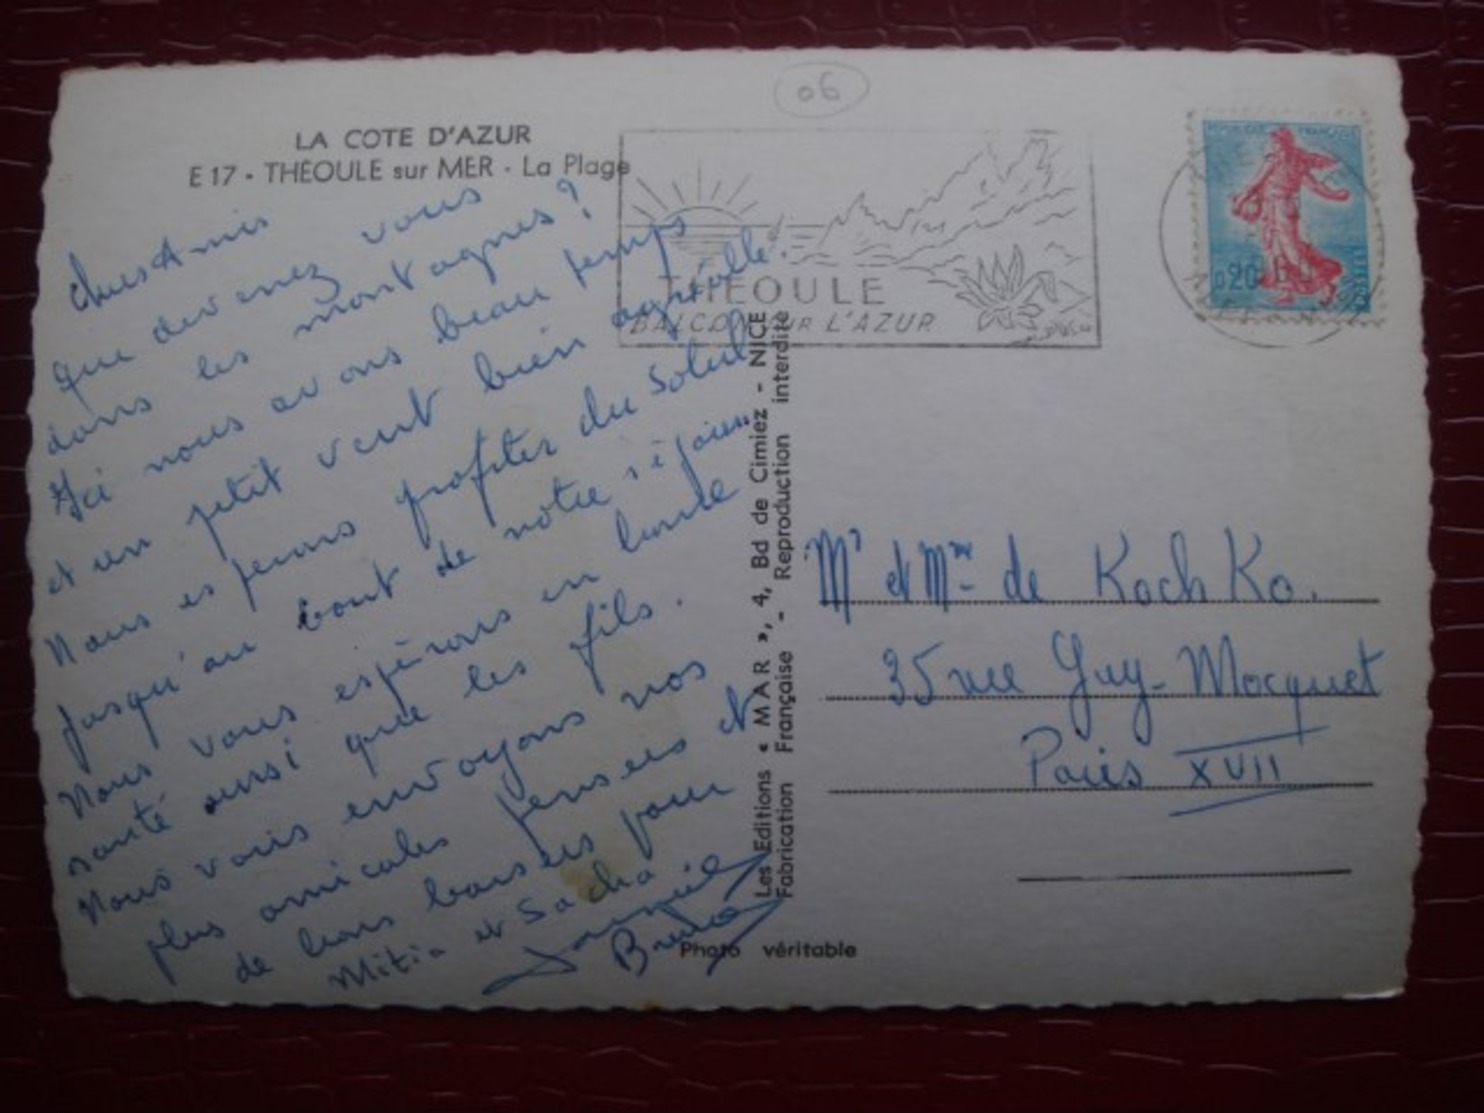 06
LA COTE D'AZUR
E 17 - THÉOULE sur MER - La Plage
Chers Amis
que devenez vous
dans les montagnes ?
Ici nous avons beau temps
et un petit vent bien agréable.
Nous espérons profiter du soleil
jusqu'au bout de notre séjour
Nous vous espérons en bonne
santé ainsi que les fils.
Nous vous envoyons nos
plus amicales pensées et
de bons baisers pour
Mitia et Sacha
THÉOULE
BALCON SUR L'AZUR
0,20
Les Editions « MAR », 4, Bd de Cimiez - NICE
Fabrication Française - Reproduction interdite
Mr et Mme de KochKo.
35 rue Guy-Mocquet
Paris XVII
Photo véritable